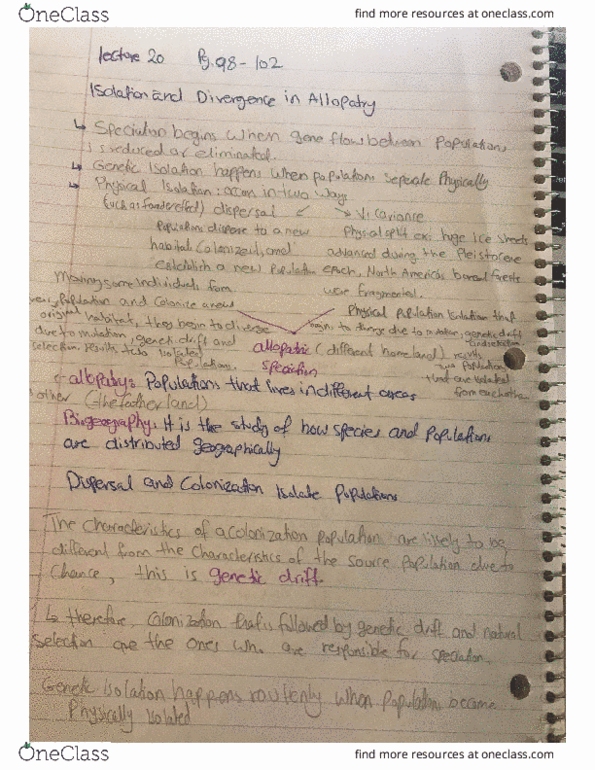 OneClass
find more resources at oneclass.com
lecture 20 Pg. 98 - 102
Isolation and Divergence in Allopatry
↳ Speciation begins when gene flow between populations
is reduced or eliminated.
↳ Genetic Isolation happens when populations seperate Physically
↳ Physical Isolation: occur in two ways
(such as founder effect) dispersal ↙ ↘ Vicariance
Populations dispease to a new
habitat, Colonized, and
establish a new Population
Physical split ex: huge ice sheets
advanced during the Pleistocene
epoch, North America's boreal forests
were fragmented.
Moving some individuals from
Population and Colonize a new
original habitat, they begin to diverge
due to mutation, genetic drift and
selection. results two isolated
Populations.
Physical Population Isolation that
begin to change due to mutation, genetic drift
and selection
results
two Populations
that are isolated
from eachother
allopatric (different homeland)
speciation
allopatry: Populations that lives in different areas
other (the father land)
Biogeography: It is the study of how species and Populations
are distributed geographically
Dispersal and Colonization Isolate Populations
The Characteristics of a colonization population are likely to be
different from the characteristics of the source Population due to
Chance, this is genetic drift.
↳ therefore, Colonization that is followed by genetic drift and natural
selection are the ones who are responsible for speciation.
Genetic Isolation happens routinly when Populations became
Physically Isolated
OneClass
find more resources at oneclass.com